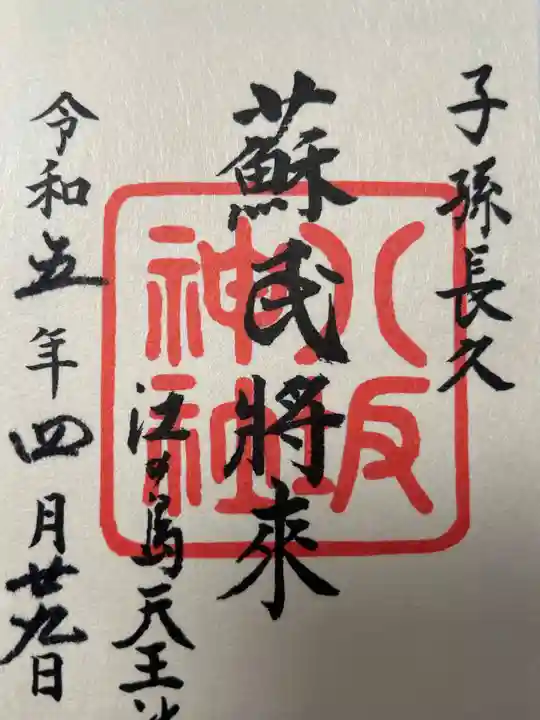 子孫長久
蘇民將來
江の島天王
令和五年四月廿九日
八坂
神社